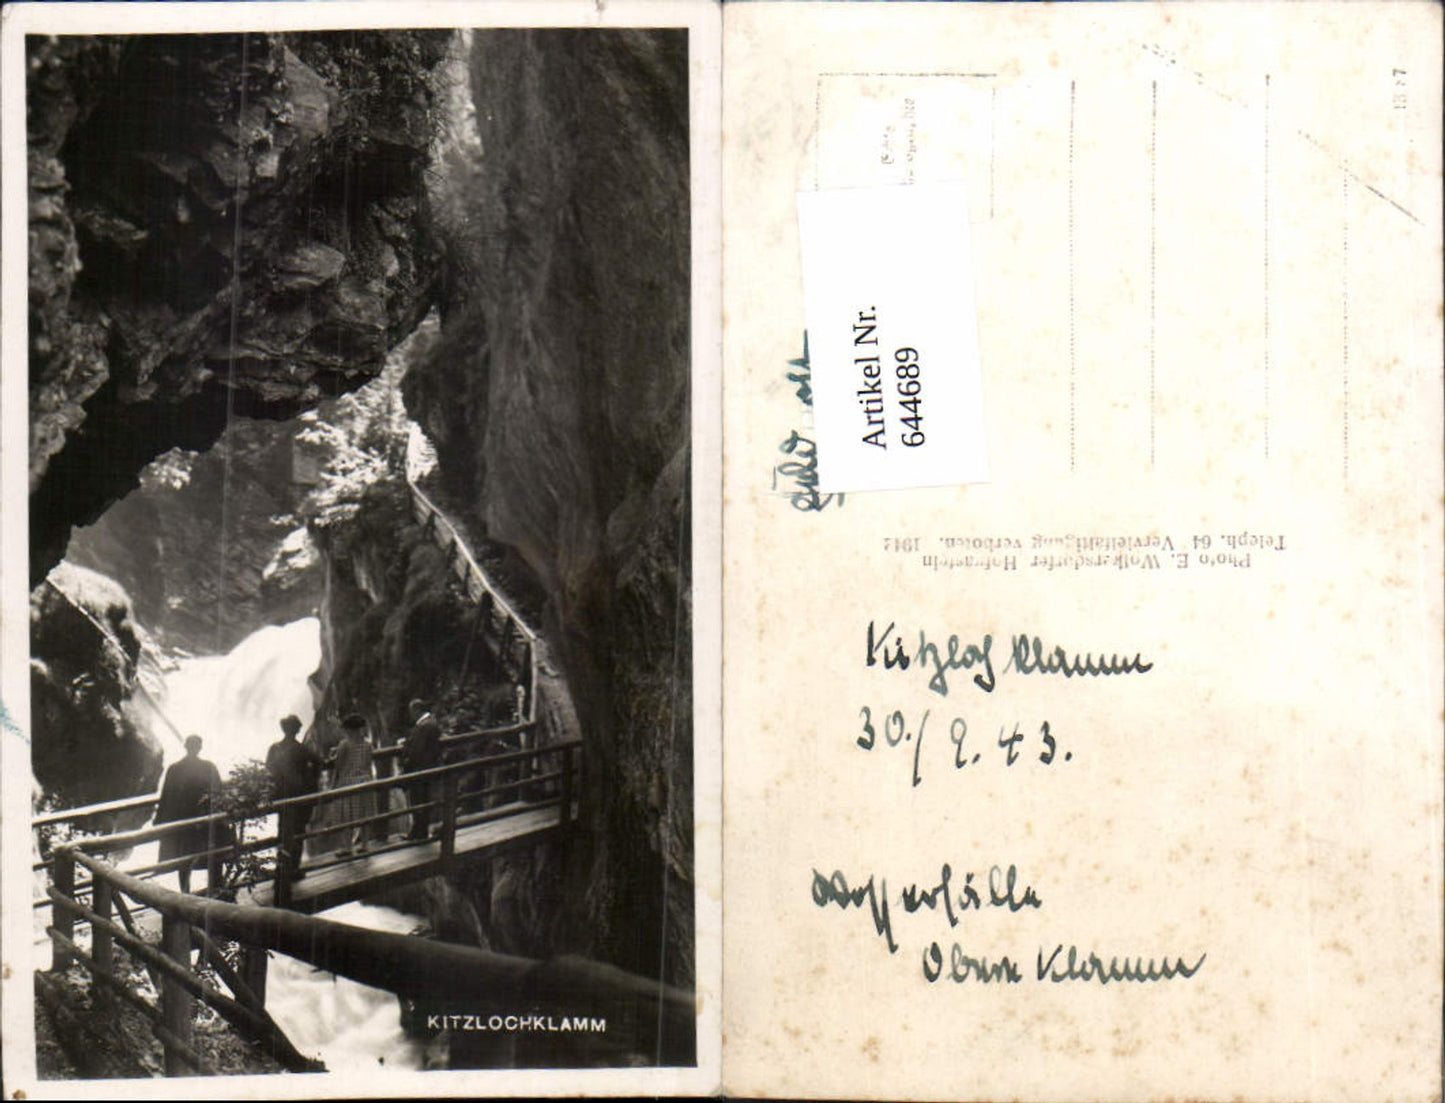 KITZLOCHKLAMM
Artikel Nr.
644689
Photo E. Wolkersdorfer Hofgastein
Teleph. 64 Vervielfältigung verboten. 1942
Kitzloch klamm
30./9.43.
Wasserfälle
Obere Klamm